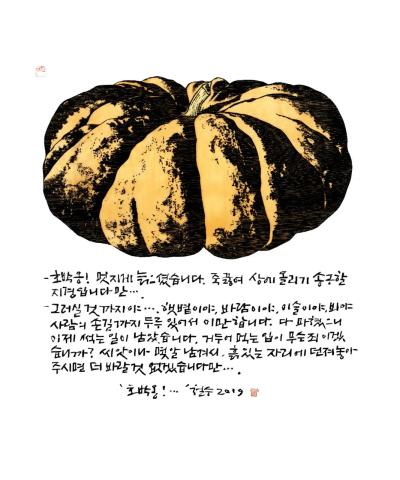 -호박옹! 멋지게 늙으셨습니다. 죽 끓여 상에 올리기 송구할
지경입니다만….
-그러실 것까지야…. 햇볕이야, 바람이야, 이슬이야, 비야
사람의 손길까지 두루 있어서 이만합니다. 다 파했으니
이제 썩는 일이 남았습니다. 거두어 먹는 일이 무슨 죄이겠
습니까? 씨앗이나 몇 알 남겨서, 흙 있는 자리에 던져 놓아
주시면 더 바랄 것 없겠습니다만….
'호박옹!…' 철수 2019